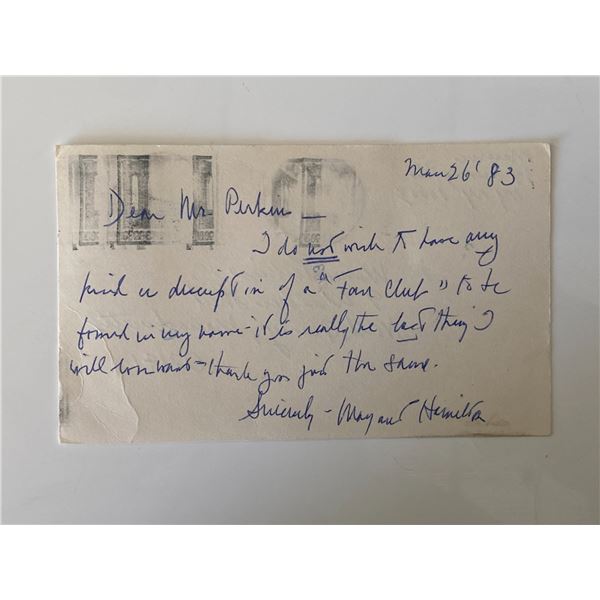 Mar 26 '83
Dear Mr. Perkins —
I do not wish to have any
kind or description of a "Fan Club" to be
formed in my name - it is really the last thing I
will ever want - thank you just the same.
Sincerely - Margaret Hamilton